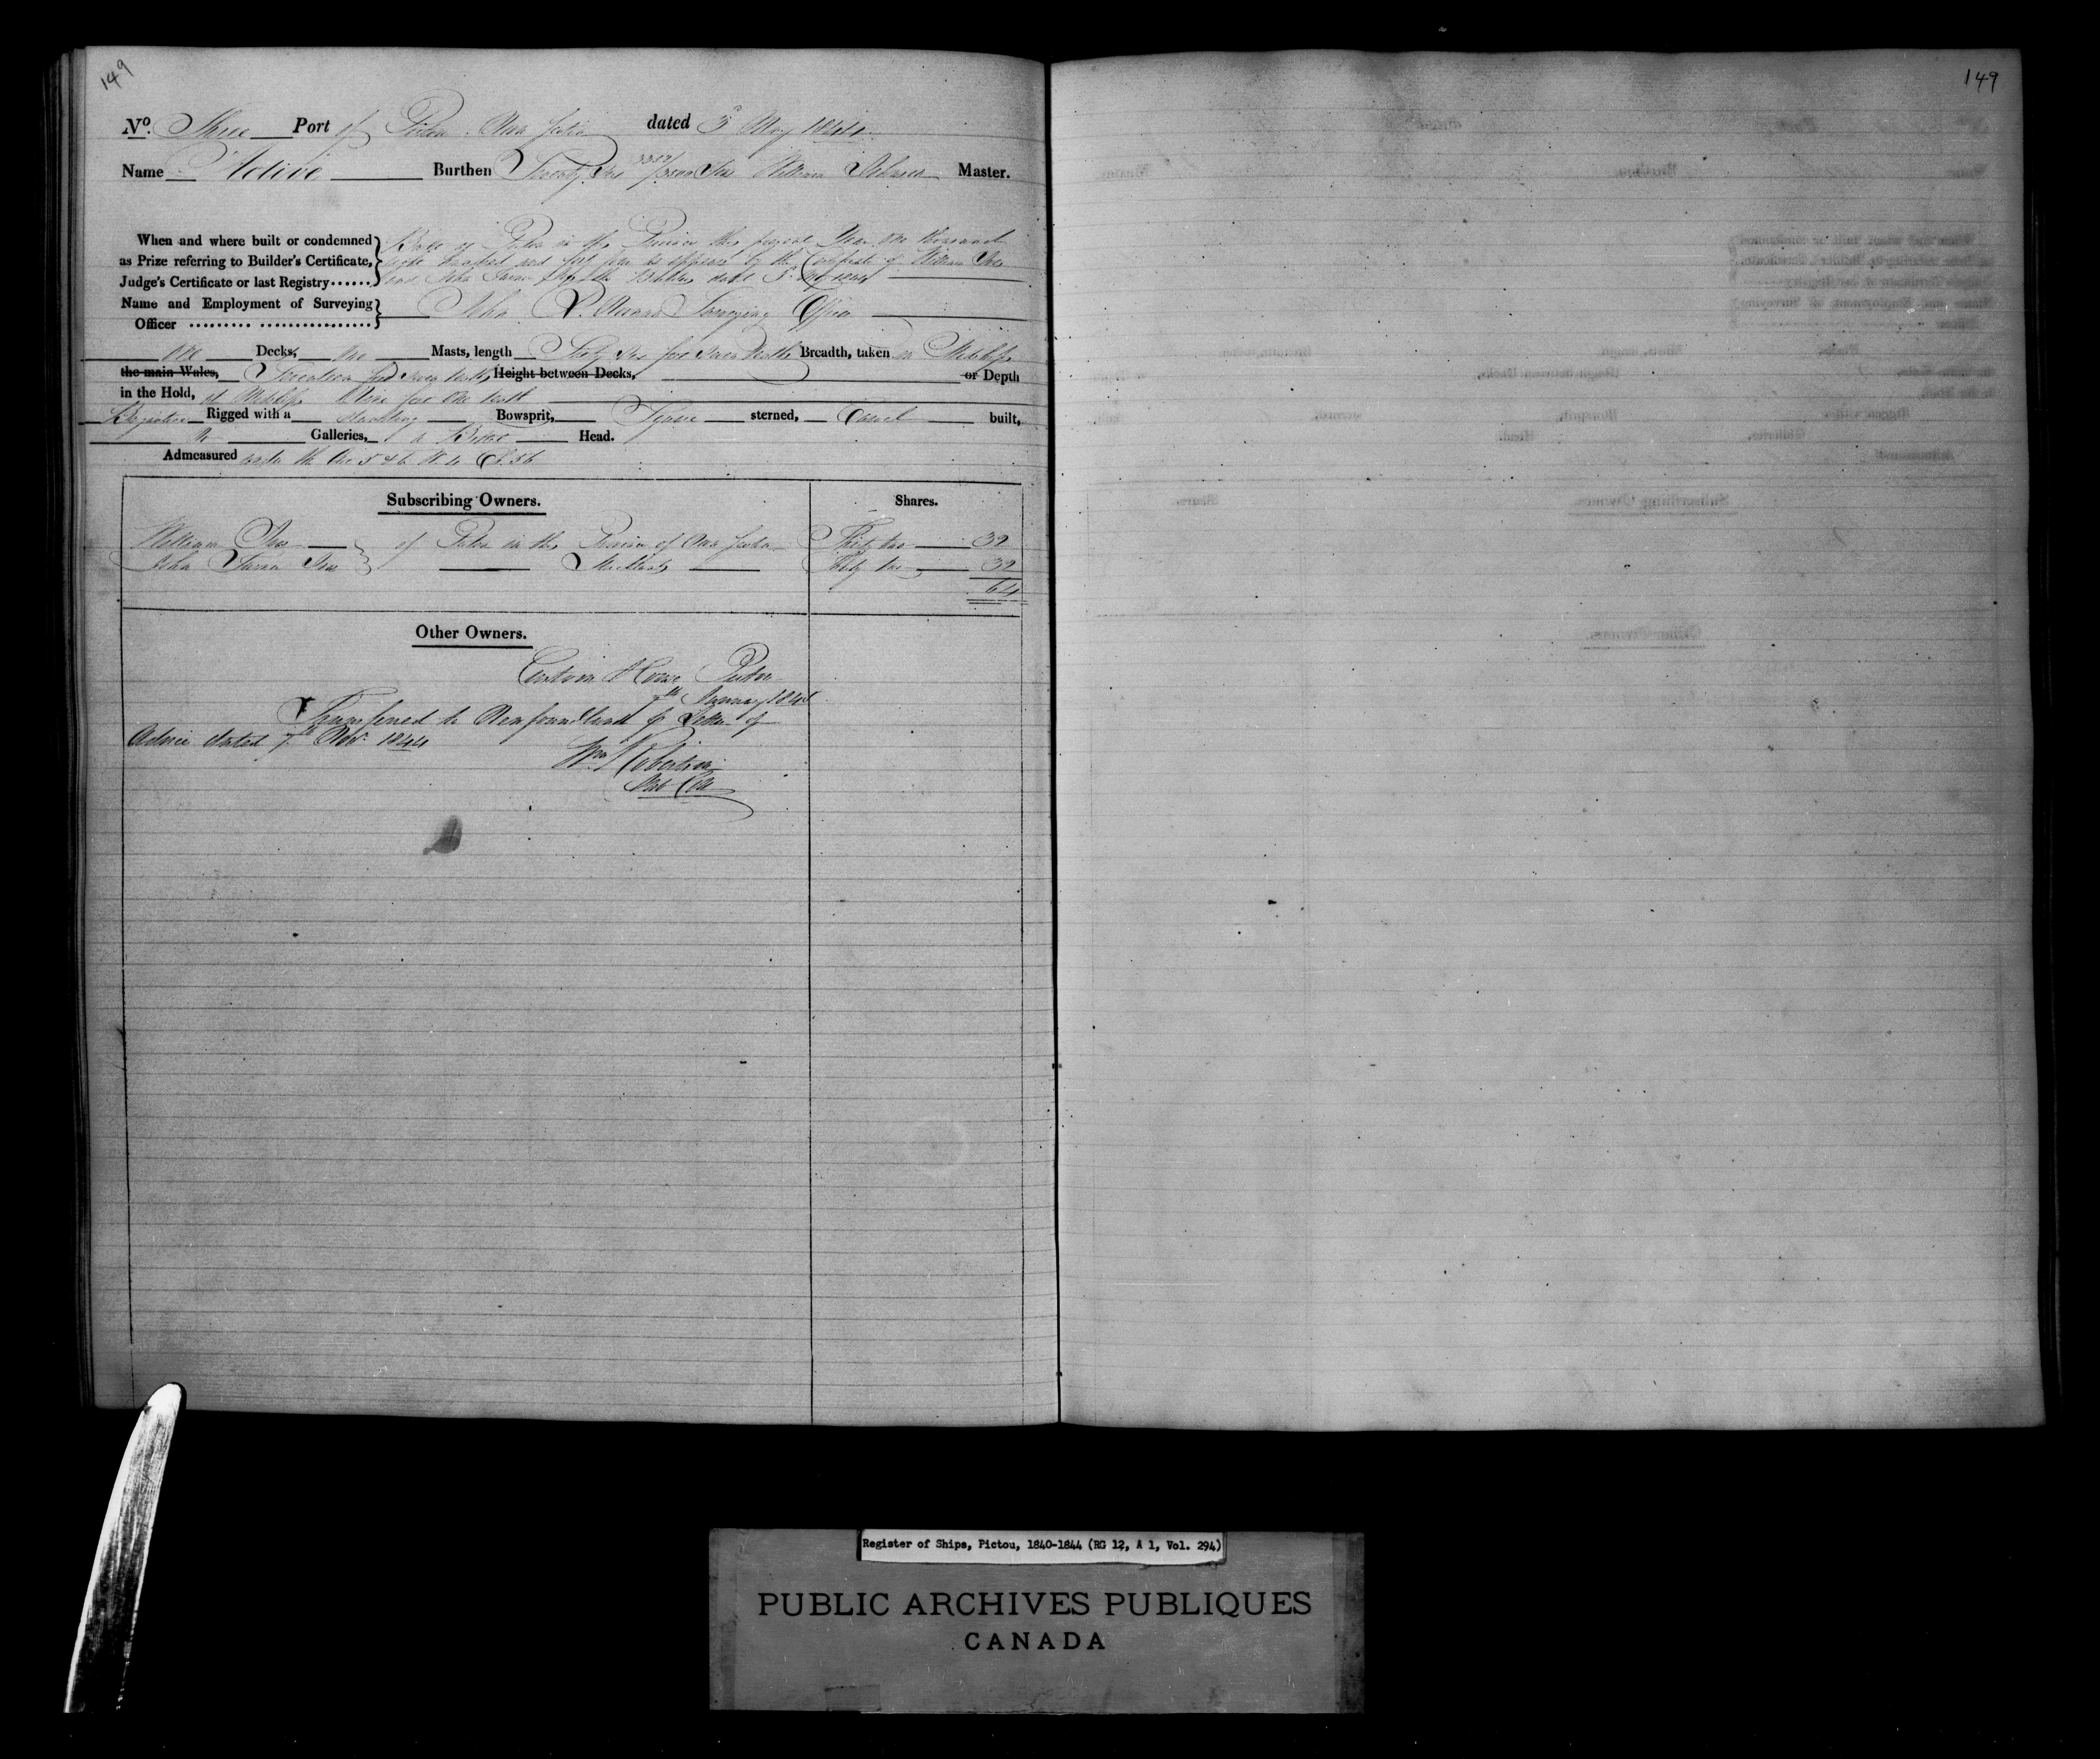 149
149
No. Three Port of Pictou Nova Scotia dated 3d May 1844
Name Active Burthen Seventy two Tons William Master.
When and where built or condemned
as Prize referring to Builder's Certificate,
Judge's Certificate or last Registry......
Built at Pictou in the Province this present Year One thousand
eight hundred and forty four as appears by the Certificate of William Ives
and John Ives the Builders dated 3d May 1844
Name and Employment of Surveying
Officer
John D. Surveying Officer
one Decks, two Masts, length Sixty two feet seven tenths Breadth, taken in Midships
the main Wales, Seventeen feet seven tenths Height between Decks, or Depth
in the Hold, at Midships feet One tenth
Brigantine Rigged with a standing Bowsprit, Square sterned, Carvel built,
no Galleries, a Billet Head.
Admeasured under the Act 5 & 6 W. 4 Ch. 56
Subscribing Owners. Shares.
William Ives of Pictou in the Province of Nova Scotia Thirty two 32
John Ives Merchants Thirty two 32
64
Other Owners.
Custom House Pictou
7th January 1845
Transfered to Newfoundland p Letter of
Advice dated 7th Nov. 1844
Wm Robertson
Sub Coll
Register of Ships, Pictou, 1840-1844 (RG 12, A 1, Vol. 294)
PUBLIC ARCHIVES PUBLIQUES
CANADA